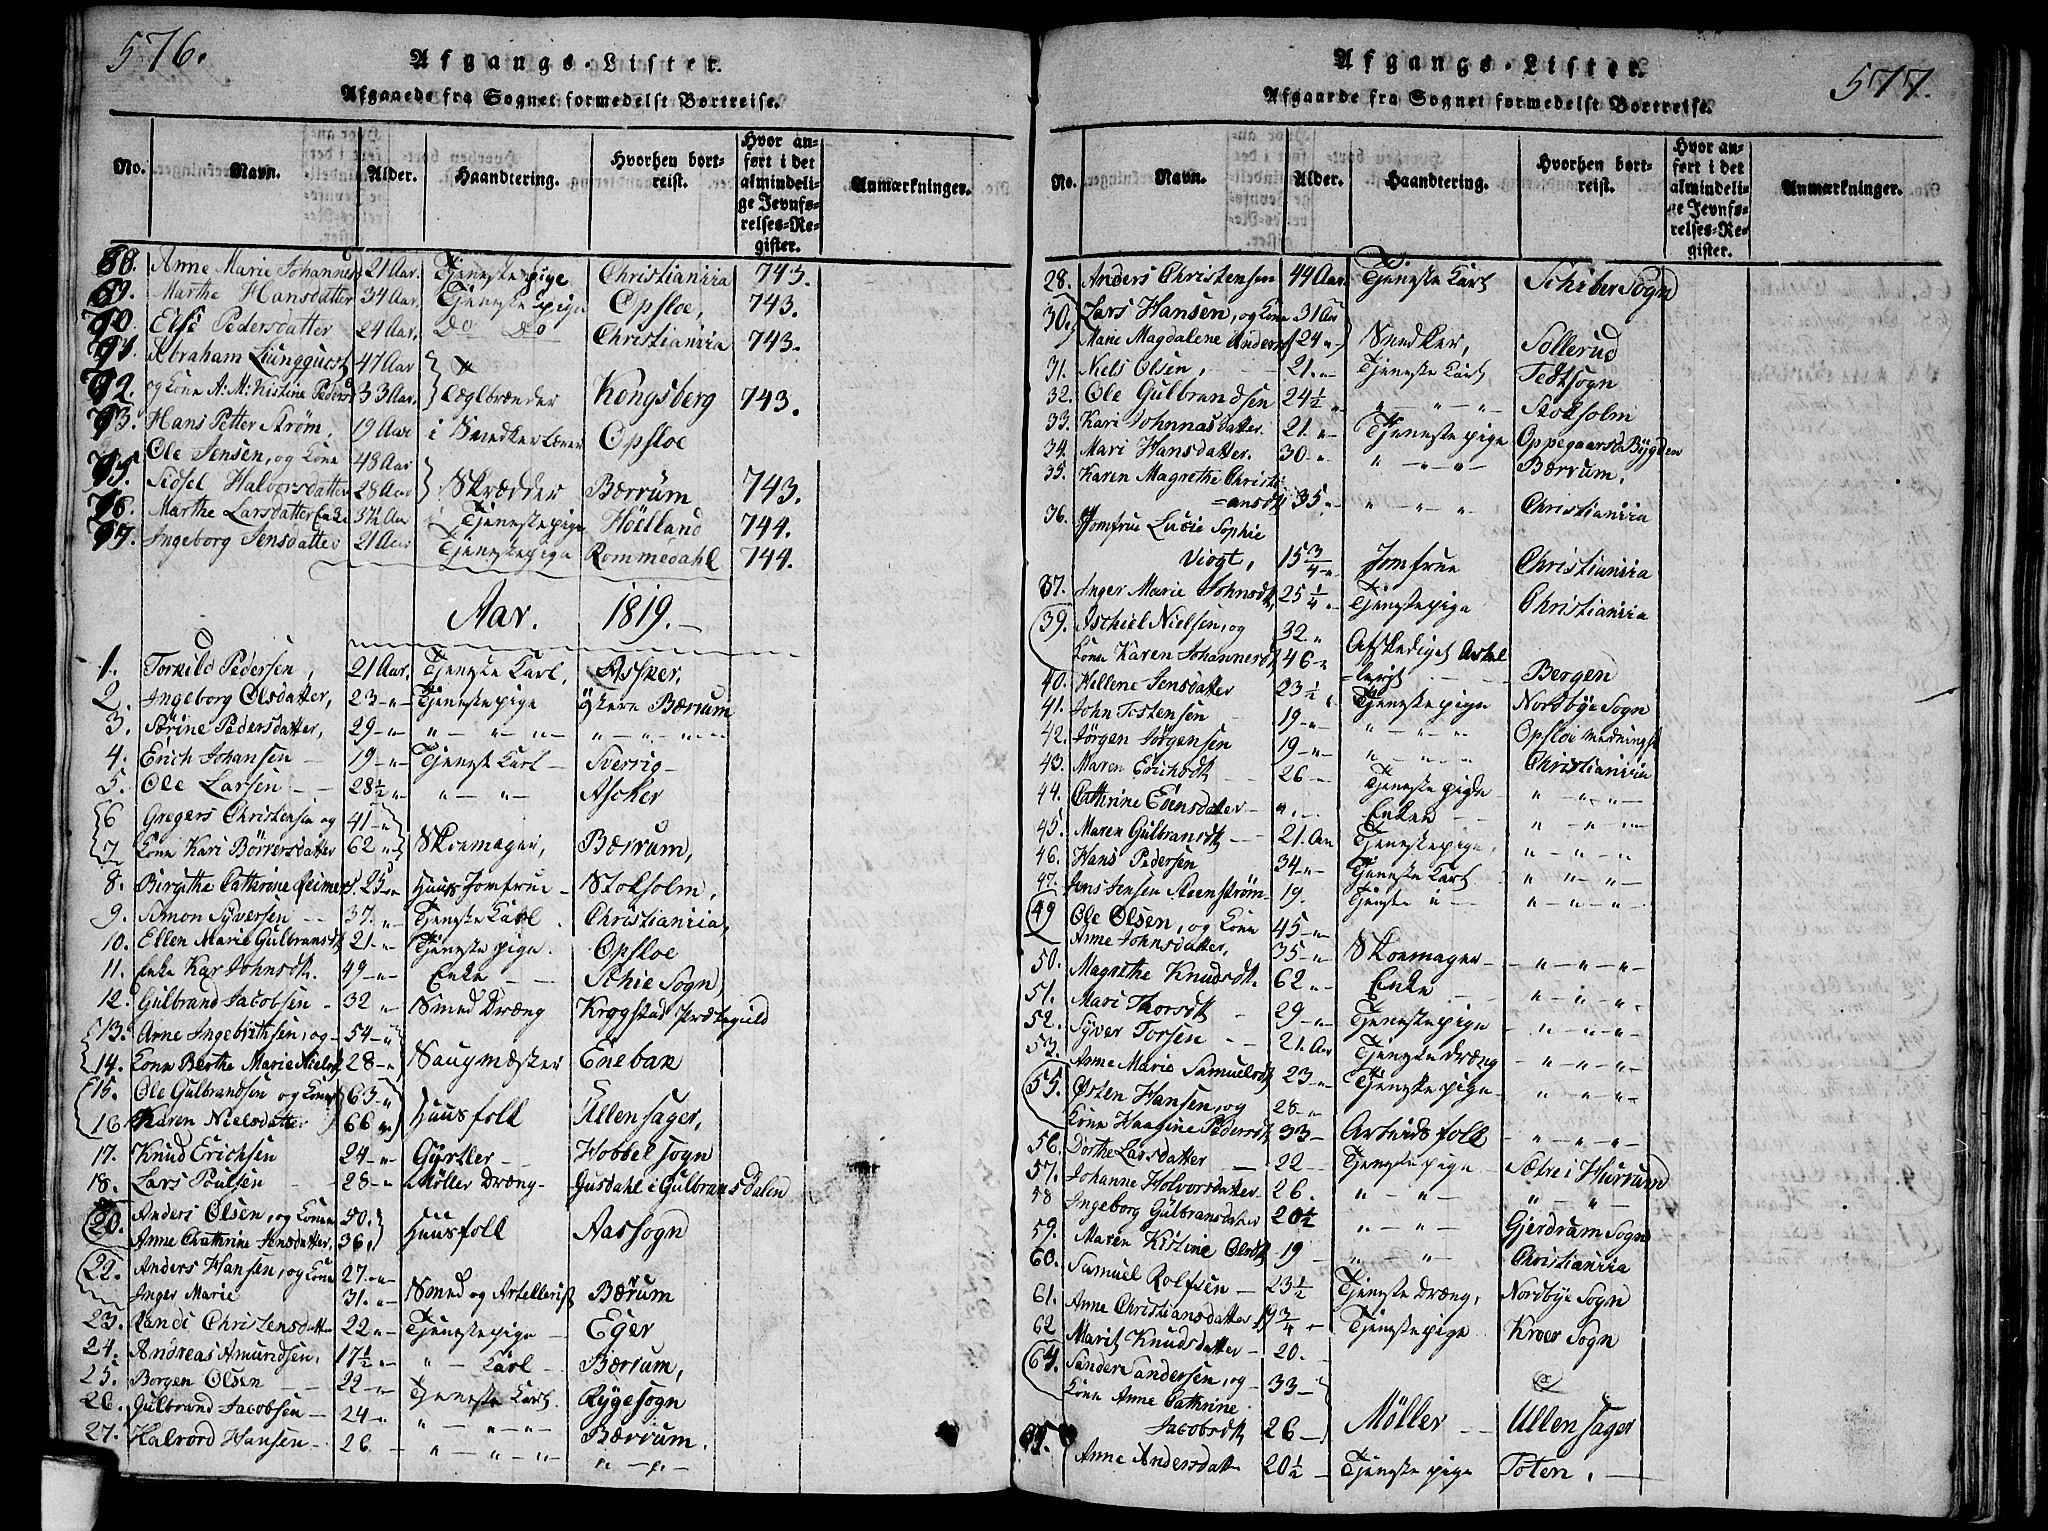 576.
Afgangs-Lister.
Afgaaede fra Sognet formedelst Bortreise.
No. Navn. Alder. Haandtering. Hvorhen bortreist. Hvor anført i det almindelige Jevnførelses-Register. Anmærkninger.
88. Anne Marie Johannesd 21 Aar. Tjenestepige Christiania 743.
89. Marthe Hansdatter 34 Aar. Tjenestepige Opsloe, 743.
90. Else Pedersdatter 24 Aar. Do Do Christiania 743.
91. Abraham Liungquest 47 Aar
92. og Kone A: M: Kistine Peders 33 Aar. Kongsberg 743.
93. Hans Petter Strøm. 19 Aar i Snedkerlære Opsloe
Ole Jensen, og Kone 48 Aar
95. Sidsel Halvorsdatter 28 Aar Skrædder Bærrum 743.
96. Marthe Larsdatter Enke 37½ Aar Tjenestepige Höelland 744.
97. Ingeborg Jensdatter 21 Aar Tjenestepige Rommedahl 744.
Aar. 1819.
1. Torkild Pedersen, 21 Aar. Tjeneste Karl. Asker.
2. Ingeborg Olsdatter, 23 - " - Tjenestepige Bærrum
3. Sørine Pedersdatter, 29 - " " - " - " - " " - " - " -
4. Erich Johansen 19 - " Tjenest Karl - Sverrig -
5. Ole Larsen - - 28½ " " - " - " Ascker
6 Gregers Christensen og 41 - "
7. Kone Kari Börresdatter 62 " Skoemager, Bærrum,
8. Birgithe Cathrine Reimers 25 - " Huus Jomfrue - Stokholm,
9. Simon Syversen - - 37. " Tjeneste Karl. Christiania,
10. Ellen Marie Gulbransdt 21 - " Tjenestepige. Opsloe
11. Enke Kar Johnsdt. 49 - " - Enke - - Schie Sogn,
12. Gulbrand Jacobsen - 32 " - Smed Dræng Krogstad Præstegield
13. Arne Ingebrithsen, og - 54 - "
14. Kone Berthe Marie Nielsd 28 - " Saugmæster Enebak
15. Ole Gulbrandsen og Kone 63 - "
16. Karen Nielsdatter 66 " Huusfolk Ullensager,
17. Knud Erichsen 24 - " Gürtler - - Hobbel sogn
18. Lars Poulsen 28 - " Møller Dræng - Gusdahl i Gulbransdalen
Anders Olsen, og Konen 50.
20. Anne Cathrine Jensdatter, 36. Huusfolk Aassogn
22. Anders Hansen, og Kone 27. - " -
Inger Marie 31. " - Smed og Artellerist Bærum
23. Randi Christensdatter 22 " - Tjenestepige - Eger
24. Andreas Amundsen. 17½ " - " - Karl - Bærrum,
25. Borgen Olsen 22 - " Tjeneste Karl. Rygesogn
26. Gulbrand Jacobsen - 24 - " " - " - " - Bærrum.
27. Halvord Hansen - 26 - " - " - " " - " -
577.
Afgangs-Lister.
Afgaaede fra Sognet formedelst Bortreise.
No. Navn. Alder. Haandtering. Hvorhen bortreist. Hvor anført i det almindelige Jevnførelses-Register. Anmærkninger.
28. Anders Christensen 44 Aar. Tjeneste Karl Schiber Sogn
30. Lars Hansen, og Kone 31 Aar
Marie Magdalene Anders 24 " Snedker, Sollerud
31. Niels Olsen, - - 21. - Tjeneste Karl
32. Ole Gulbrandsen 24½ " " " - " Stokholm
33. Kari Johnnasdatter. 21. " - Tjenestepige Oppegaards Bygden
34. Mari Hansdatter. 30 - " " - " - " - Bærrum,
35. Karen Magrethe Christi
=ansdt 35 - " - " - " Christiania
36. Jomfrue Lucie Sophie
Viogt, 15¾ - Jomfrue Christiania
37. Inger Marie Johnsdt, 25¼ " Tjenestepige Christiania
39. Eschiel Nielsen, og 32 " Afskediget Artel
Kone Karen Johannesdt 46 - " =lerist - - Bergen
40. Hellene Jensdatter 23½ " Tjenestepige Nordbye Sogn
41. John Tostensen 19 - " " - " - " - Opsloe
42. Jørgen Jørgensen 19 - " " - " - " Christiania
43. Maren Erichsdt 26 - Tjenestepige - " - " - " -
44. Cathrine Evensdatter - " - Enken - - " - " - " -
45. Maren Gulbransdt - - 21. Aar Tjenestepige. " - " - " -
46. Hans Pedersen 34 - " Tjeneste Karl " - " - " -
47. Jens Jensen Steenstrøm - 19. Tjenste " - " - " - " -
49 Ole Olsen, og Kone 45 - "
Anne Johnsdatter, 35 - " Skoemager - - " - " - " -
50. Magrethe Knudsdt. 62 " - Enke - " - " - " -
51. Mari Thorsdt - 29 - " Tjenestepige - " - " - " -
52. Syver Torsen - - 21. Aar Tjeneste dræng - " - " - " -
53. Anne Marie Samuelsdt 23 - " Tjenestepige - " - " - " -
55. Østen Hansen, og 28 - "
Kone Haagine Pedersdt 33 - Arbeids folk - " - " - " -
56. Dorthe Larsdatter 22 - Tjenestepige - Sætre i Hurrum
57. Johanne Holvorsdatter - 26. " - " - " - " - "
58 Ingeborg Gulbransdater 20½ " - " - " - Gjerdrum Sogn
59. Maren Kistine Olsdt 19 - " " - Christiania
60. Samuel Rolfsen - 23½ Tjeneste dræng, Nordbye Sogn
61. Anne Christiansdatter 19¾ - Tjenestepige Kroer Sogn
62 Marit Knudsdatter - 20. -
64. Sander Sandersen, og - 33 -
Kone Anne Cathrine
Jacobsdt 26 - Möller - - Ullensager
65. Anne Andersdatt 20½ - Tjenestepige Toten. -